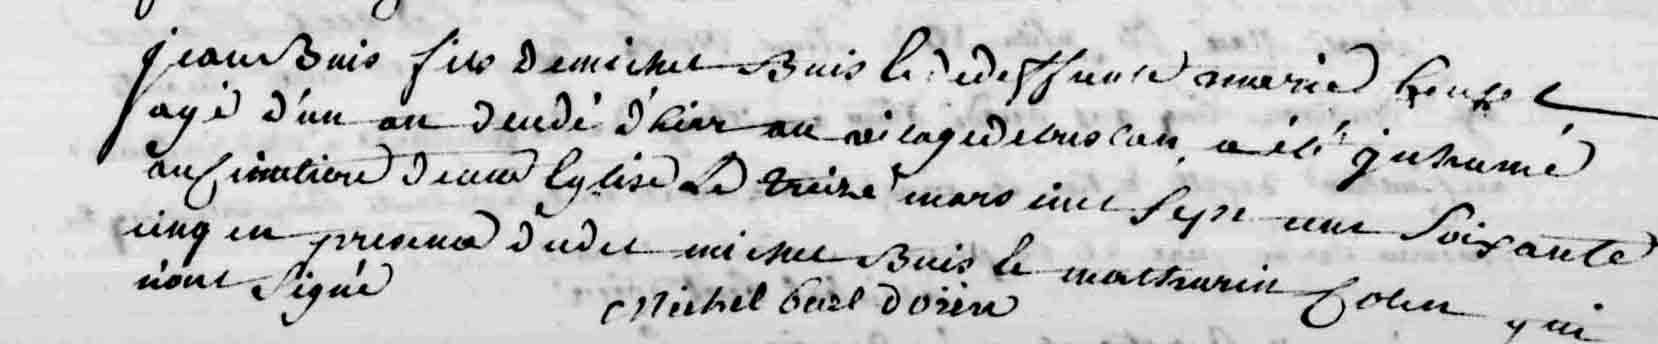 jean Buis fils de michel Buis & de deffunte marie
agé d'un an decedé d'hier au vilage de a été jnhumé
au Cimetiere de cette Eglise Le treize mars mil sept cent Soixante
cinq en presence dudit michel Buis & mathurin Colin qui
n'ont Signé Michel